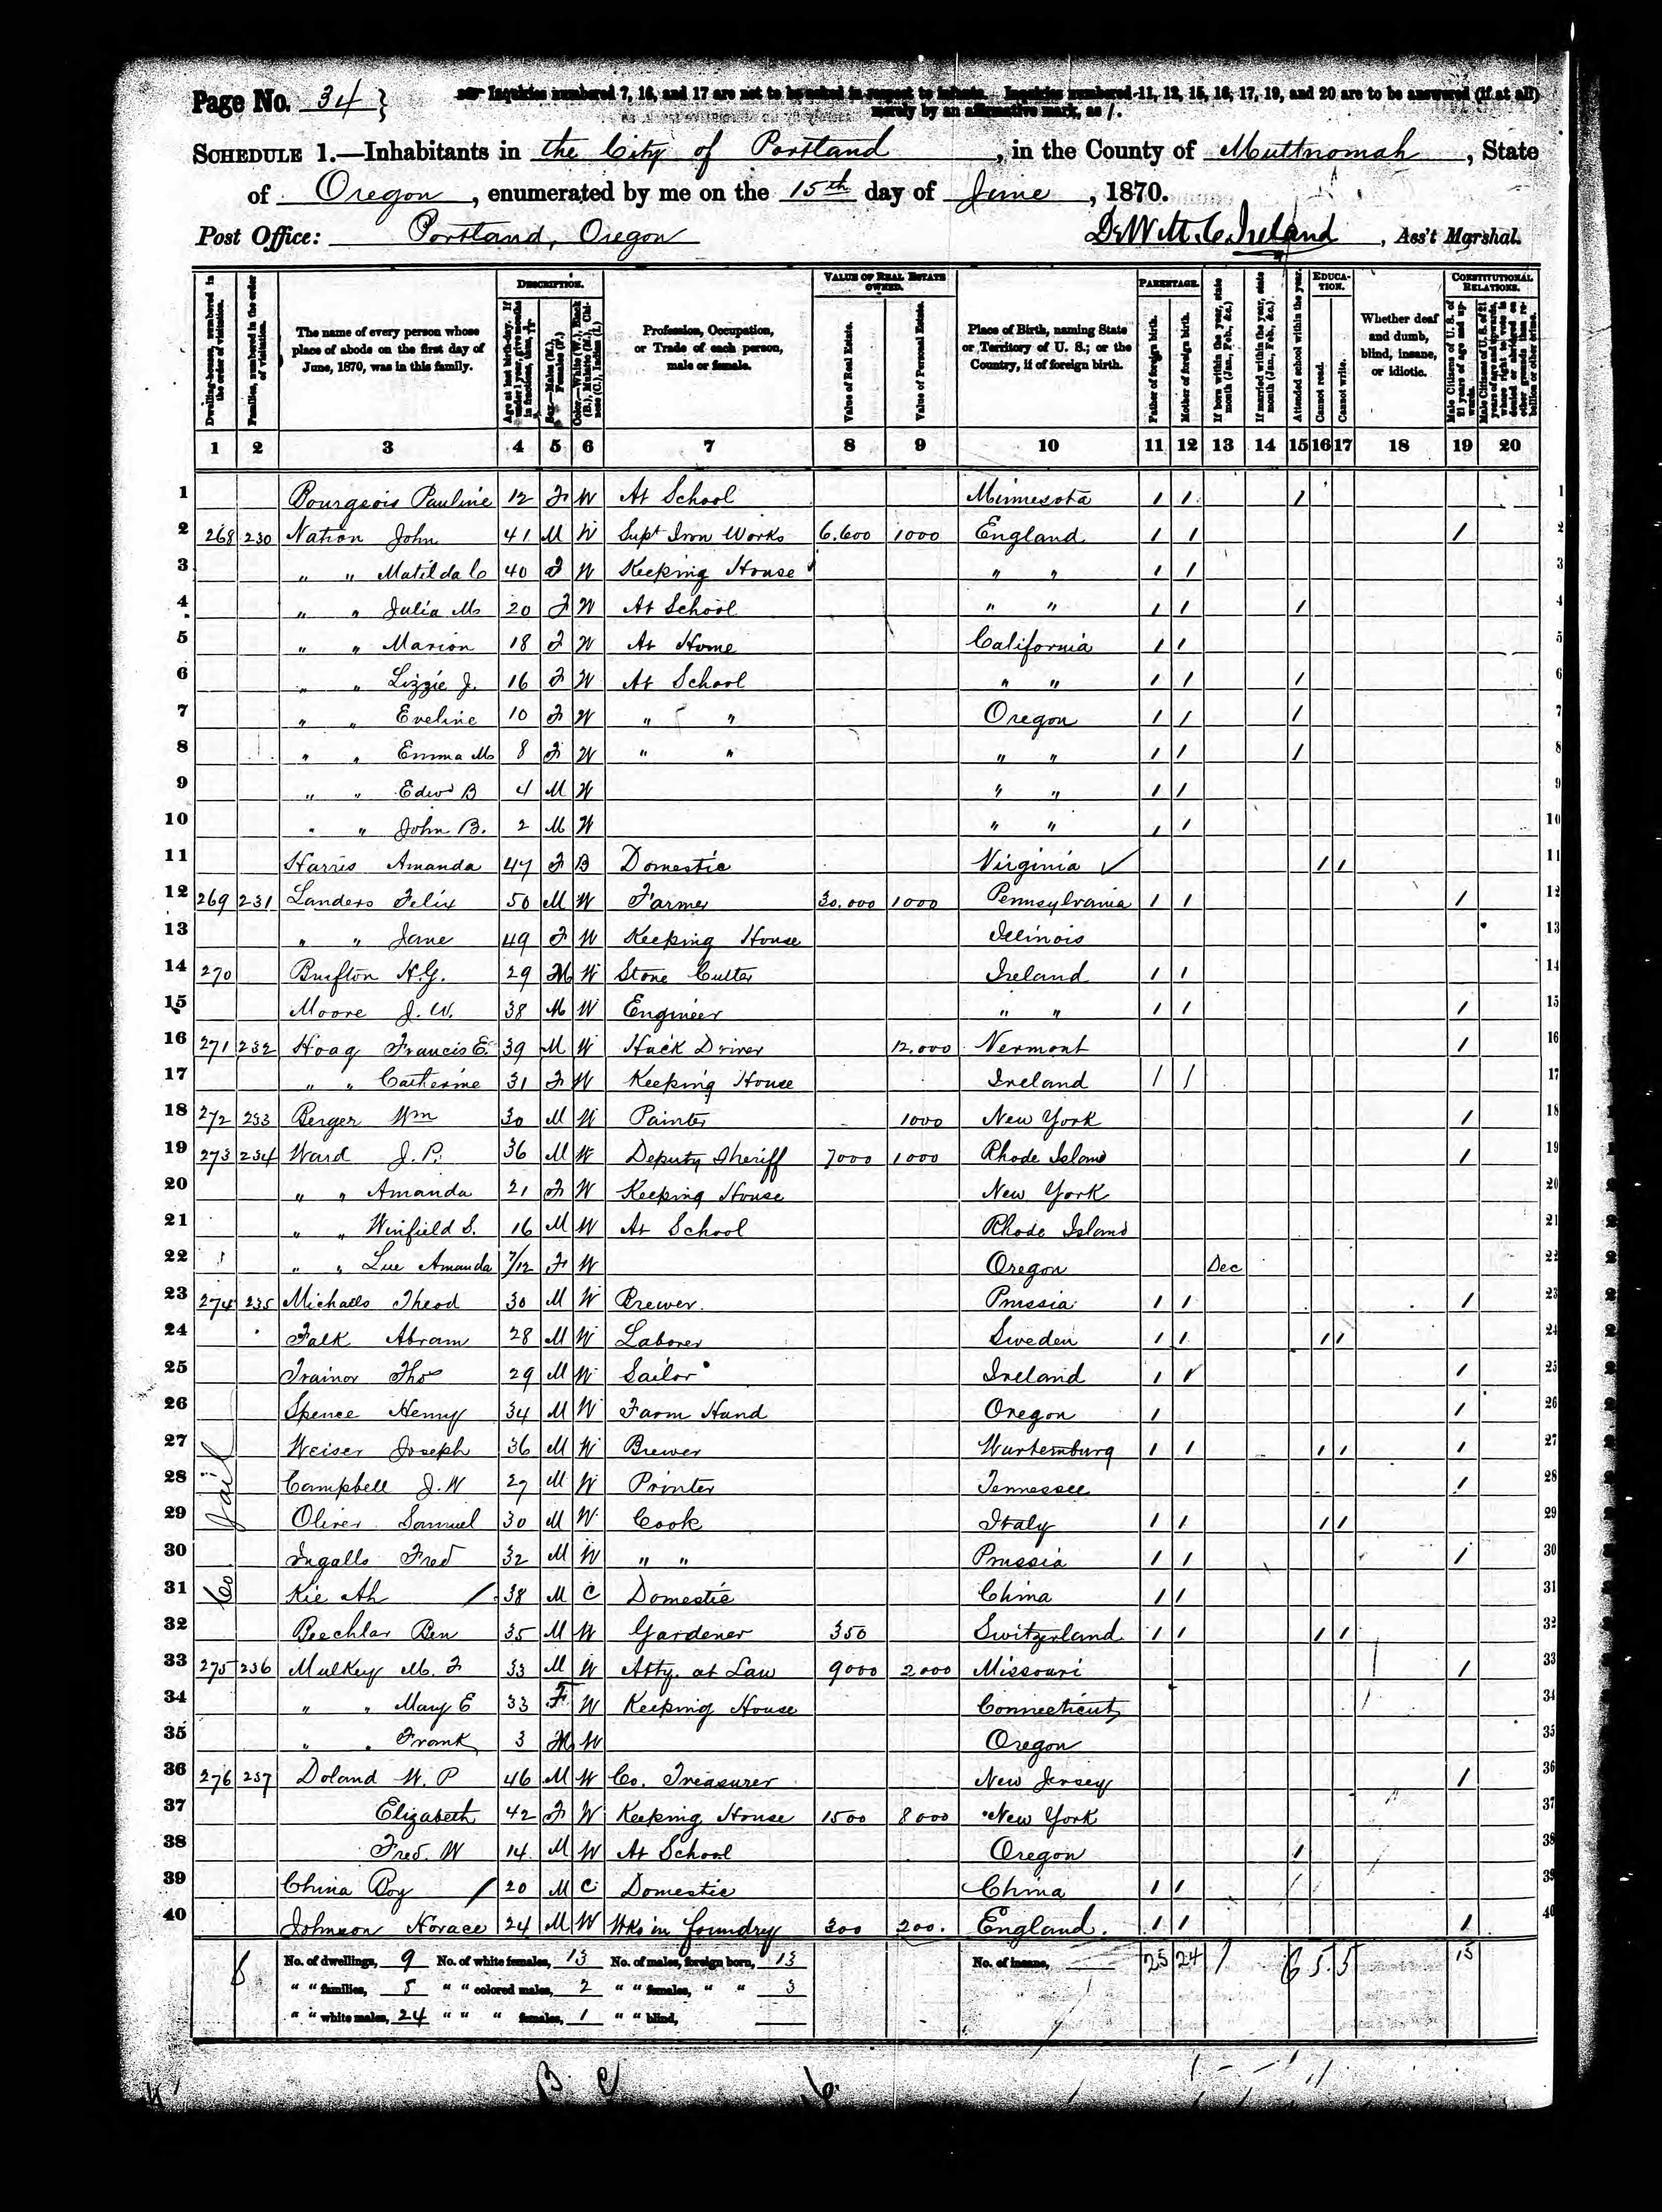 Page No. 34
Inquiries numbered 7, 16, and 17 are not to be asked in respect to infants. Inquiries numbered 11, 12, 15, 16, 17, 19, and 20 are to be answered (if at all)
merely by an affirmative mark, as /.
SCHEDULE 1.—Inhabitants in the City of Portland, in the County of Multnomah, State
of Oregon, enumerated by me on the 15th day of June, 1870.
Post Office: Portland, Oregon DeWitt C. Ireland, Ass't Marshal.
DESCRIPTION. VALUE OF REAL ESTATE OWNED. PARENTAGE. EDUCATION. CONSTITUTIONAL RELATIONS.
Dwelling-houses, numbered in the order of visitation.
Families, numbered in the order of visitation.
The name of every person whose place of abode on the first day of June, 1870, was in this family.
Age at last birth-day. If under 1 year, give months in fractions, thus, 3/12
Sex.—Males (M.), Females (F.)
Color.—White (W.), Black (B.), Mulatto (M.), Chinese (C.), Indian (I.)
Profession, Occupation, or Trade of each person, male or female.
Value of Real Estate.
Value of Personal Estate.
Place of Birth, naming State or Territory of U. S.; or the Country, if of foreign birth.
Father of foreign birth.
Mother of foreign birth.
If born within the year, state month (Jan., Feb., &c.)
If married within the year, state month (Jan., Feb., &c.)
Attended school within the year.
Cannot read.
Cannot write.
Whether deaf and dumb, blind, insane, or idiotic.
Male Citizens of U. S. of 21 years of age and upwards.
Male Citizens of U. S. of 21 years of age and upwards, where right to vote is denied or abridged on other grounds than rebellion or other crime.
1 2 3 4 5 6 7 8 9 10 11 12 13 14 15 16 17 18 19 20
1 Bourgeois Pauline 12 F W At School Minnesota / / / 1
2 268 230 Nation John 41 M W Supt Iron Works 6.600 1000 England / / / 2
3 " " Matilda C 40 F W Keeping House " " / / 3
4 " " Julia M 20 F W At School " " / / / 4
5 " " Marion 18 F W At Home California / / 5
6 " " Lizzie J. 16 F W At School " " / / / 6
7 " " Eveline 10 F W " " Oregon / / / 7
8 " " Emma M 8 F W " " " " / / / 8
9 " " Edwd B 4 M W " " / / 9
10 " " John B. 2 M W " " / / 10
11 Harris Amanda 47 F B Domestic Virginia ✓ / / 11
12 269 231 Landers Felix 50 M W Farmer 30.000 1000 Pennsylvania / / / 12
13 " " Jane 49 F W Keeping House Illinois 13
14 270 N.G. 29 M W Stone Cutter Ireland / / 14
15 Moore J. W. 38 M W Engineer " " / / / 15
16 271 232 Hoag Francis E. 39 M W Hack Driver 12.000 Vermont / 16
17 " " Catherine 31 F W Keeping House Ireland / / 17
18 272 233 Berger Wm 30 M W Painter 1000 New York / 18
19 273 234 Ward J. P. 36 M W Deputy Sheriff 7000 1000 Rhode Island / 19
20 " " Amanda 21 F W Keeping House New York 20
21 " " Winfield S. 16 M W At School Rhode Island 21
22 " " Lue Amanda 7/12 F W Oregon Dec 22
23 274 235 Michaels Theod 30 M W Brewer Prussia / / / 23
24 Falk Abram 28 M W Laborer Sweden / / / / 24
25 Trainor Thos 29 M W Sailor Ireland / / / 25
26 Spence Henry 34 M W Farm Hand Oregon / / 26
27 Weiser Joseph 36 M W Brewer Wurtemburg / / / / / 27
28 Campbell J. W 27 M W Printer Tennessee / 28
29 Oliver Samuel 30 M W Cook Italy / / / / 29
30 Ingalls Fred 32 M W " " Prussia / / / 30
31 Kie Ah / 38 M C Domestic China / / 31
Co. Jail
32 Beechlar Ben 35 M W Gardener 350 Switzerland / / / / 32
33 275 236 Mulkey M. F 33 M W Atty. at Law 9000 2000 Missouri / 33
34 " " Mary E 33 F W Keeping House Connecticut 34
35 " " Frank 3 M W Oregon 35
36 276 237 Doland W. P 46 M W Co. Treasurer New Jersey / 36
37 Elizabeth 42 F W Keeping House 1500 8000 New York 37
38 Fred. W 14 M W At School Oregon / 38
39 China Boy / 20 M C Domestic China / / 39
40 Johnson Horace 24 M W Wks in foundry 300 200. England. / / / 40
No. of dwellings, 9 No. of white females, 13 No. of males, foreign born, 13 No. of insane, 25 24 1 6 5 5 15
" " families, 8 " " colored males, 2 " " females, " " 3
" " white males, 24 " " " females, 1 " " blind,
B C